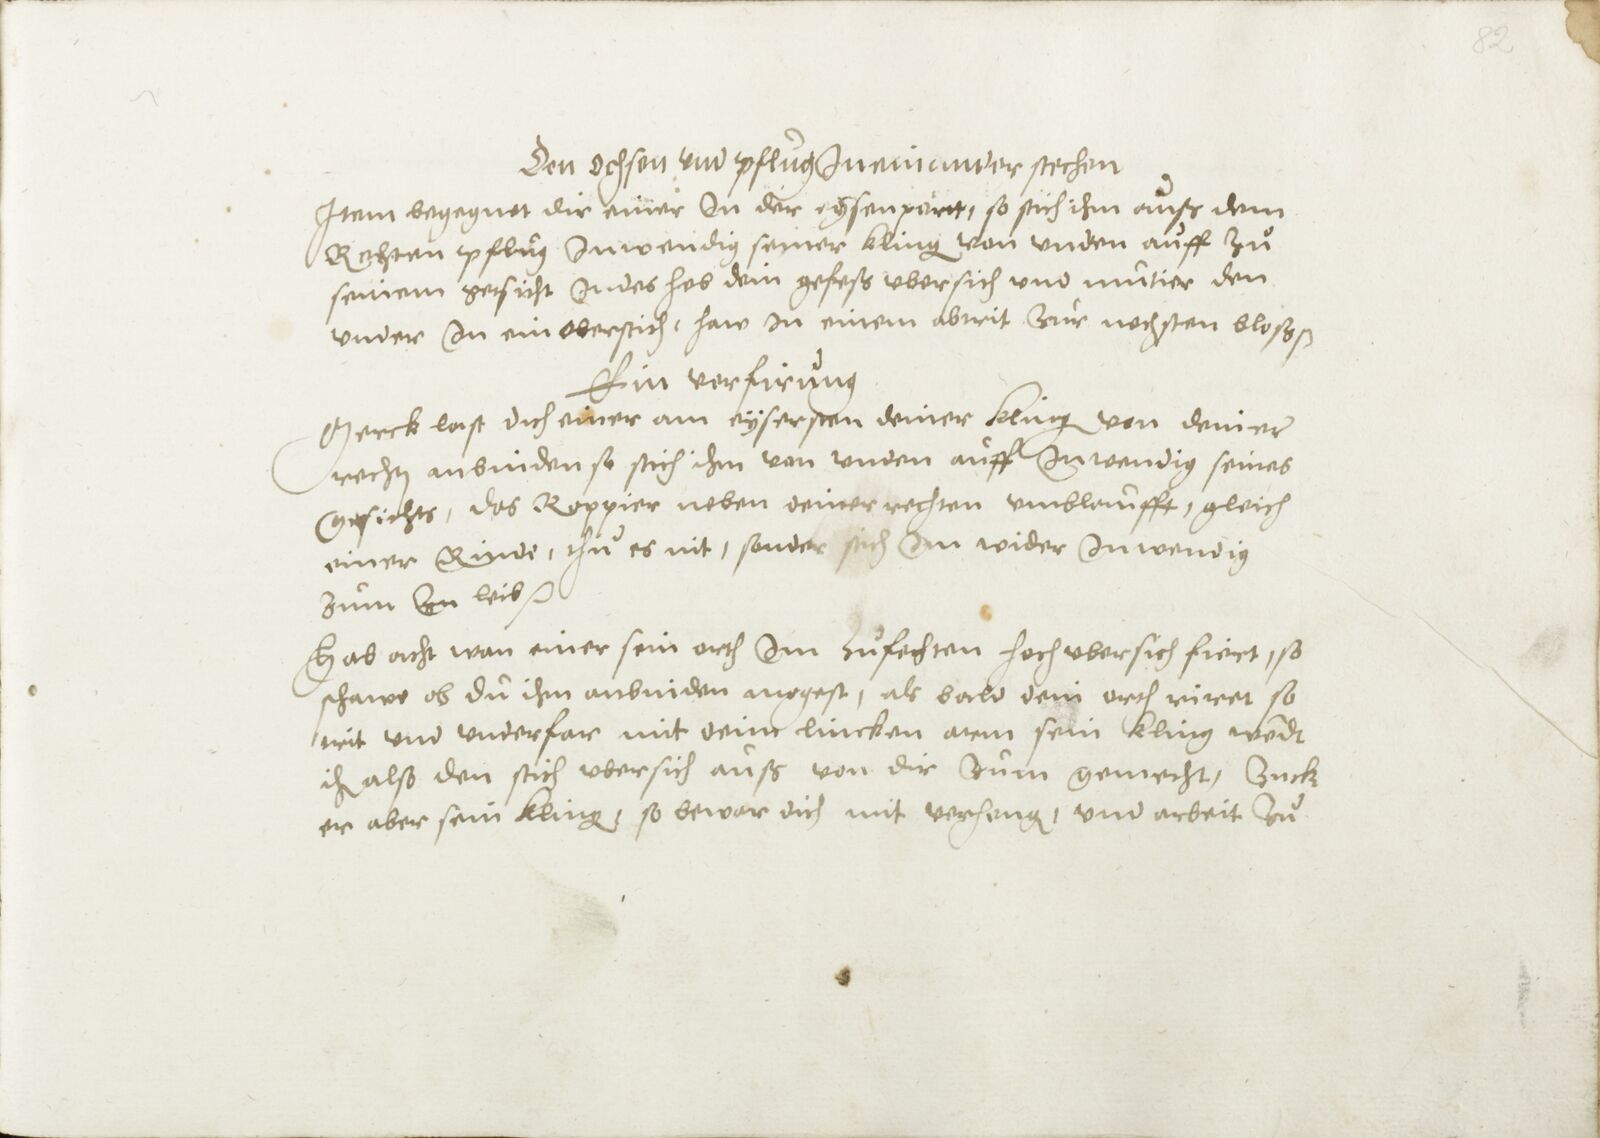 82
Den ochsen und pflug In einander stechen
Item begegnet dir einer In der eysenport, so stich ihm auß dem
Rechten pflug Inwendig seiner kling von unden auff zu
seinem gesicht Indes heb dein gefeß ubersich und mutier den
under In ein oberstich, haw In einem abtrit zur nechsten bloß
Ein verfirung
Merck last dich einer am eysersten deiner kling von deiner
rechen anbinden so stich ihm von unden auff Inwendig seines
gesichts, das Rappier neben deiner rechten umblaufft, gleich
einer Rinde, thu es nit, sonder stich Im wider Inwendig
zum leib
Hab acht wan einer sein orth Im zufechten hoch ubersich fiert, so
schawe ob du ihm anbinden mogest, als bald dein orth riret so
trit und underfar mit deim lincken arem sein kling wendt
ih also den stich ubersich auß von dir zum gemecht, Zuckt
er aber sein kling, so bewar dich mit verheng, und arbeit zu